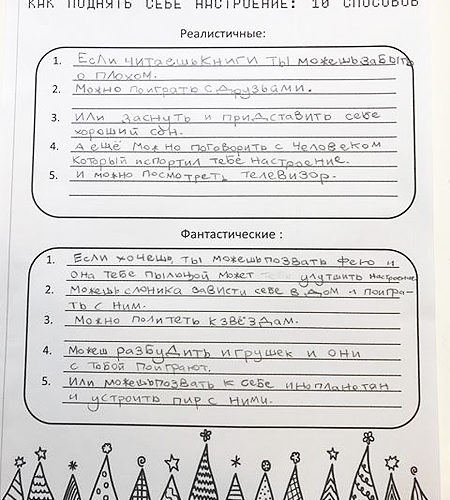 КАК ПОДНЯТЬ СЕБЕ НАСТРОЕНИЕ: 10 СПОСОБОВ
Реалистичные:
1. Если читаешь книги ты можешь забыть
о плохом.
2. Можно поиграть с друзьями.
3. Или заснуть и придставить себе
хороший сон.
4. А ещё можно поговорить с человеком
который испортил тебе настроение.
5. И можно посмотреть телевизор.
Фантастические :
1. Если хочешь, ты можешь позвать фею и
она тебе пыльцой может улутшить настроение
2. Можешь слоника зависти себе в дом и поигра-
ть с ним.
3. Можно политеть к звёздам.
4. Можеш разбудить игрушек и они
с тобой поиграют.
5. Или можешь позвать к себе инопланетан
и устроить пир с ними.